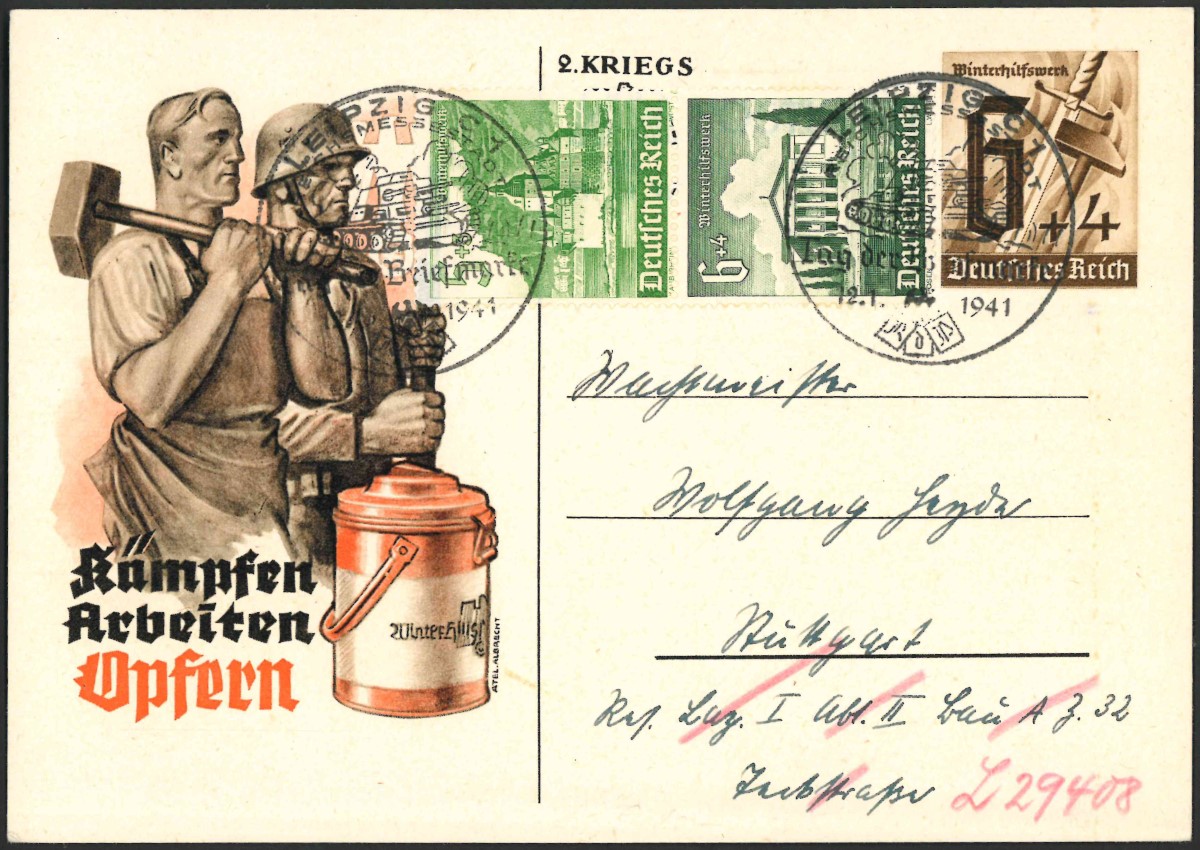 2.KRIEGS
LEIPZIG C1
MESSESTADT
Briefmarke
1941
Winterhilfswerk
Deutsches Reich
5+3
Winterhilfswerk
6+4
Deutsches Reich
LEIPZIG C1
MESSESTADT
Tag der
12.1. 1941
Winterhilfswerk
6+4
Deutsches Reich
Kämpfen
Arbeiten
Opfern
Winterhilfs
ATEL.ALBRECHT
Wachtmeister
Wolfgang
Stuttgart
Res. Laz. I Abt. II Bau A Z. 32
L 29408